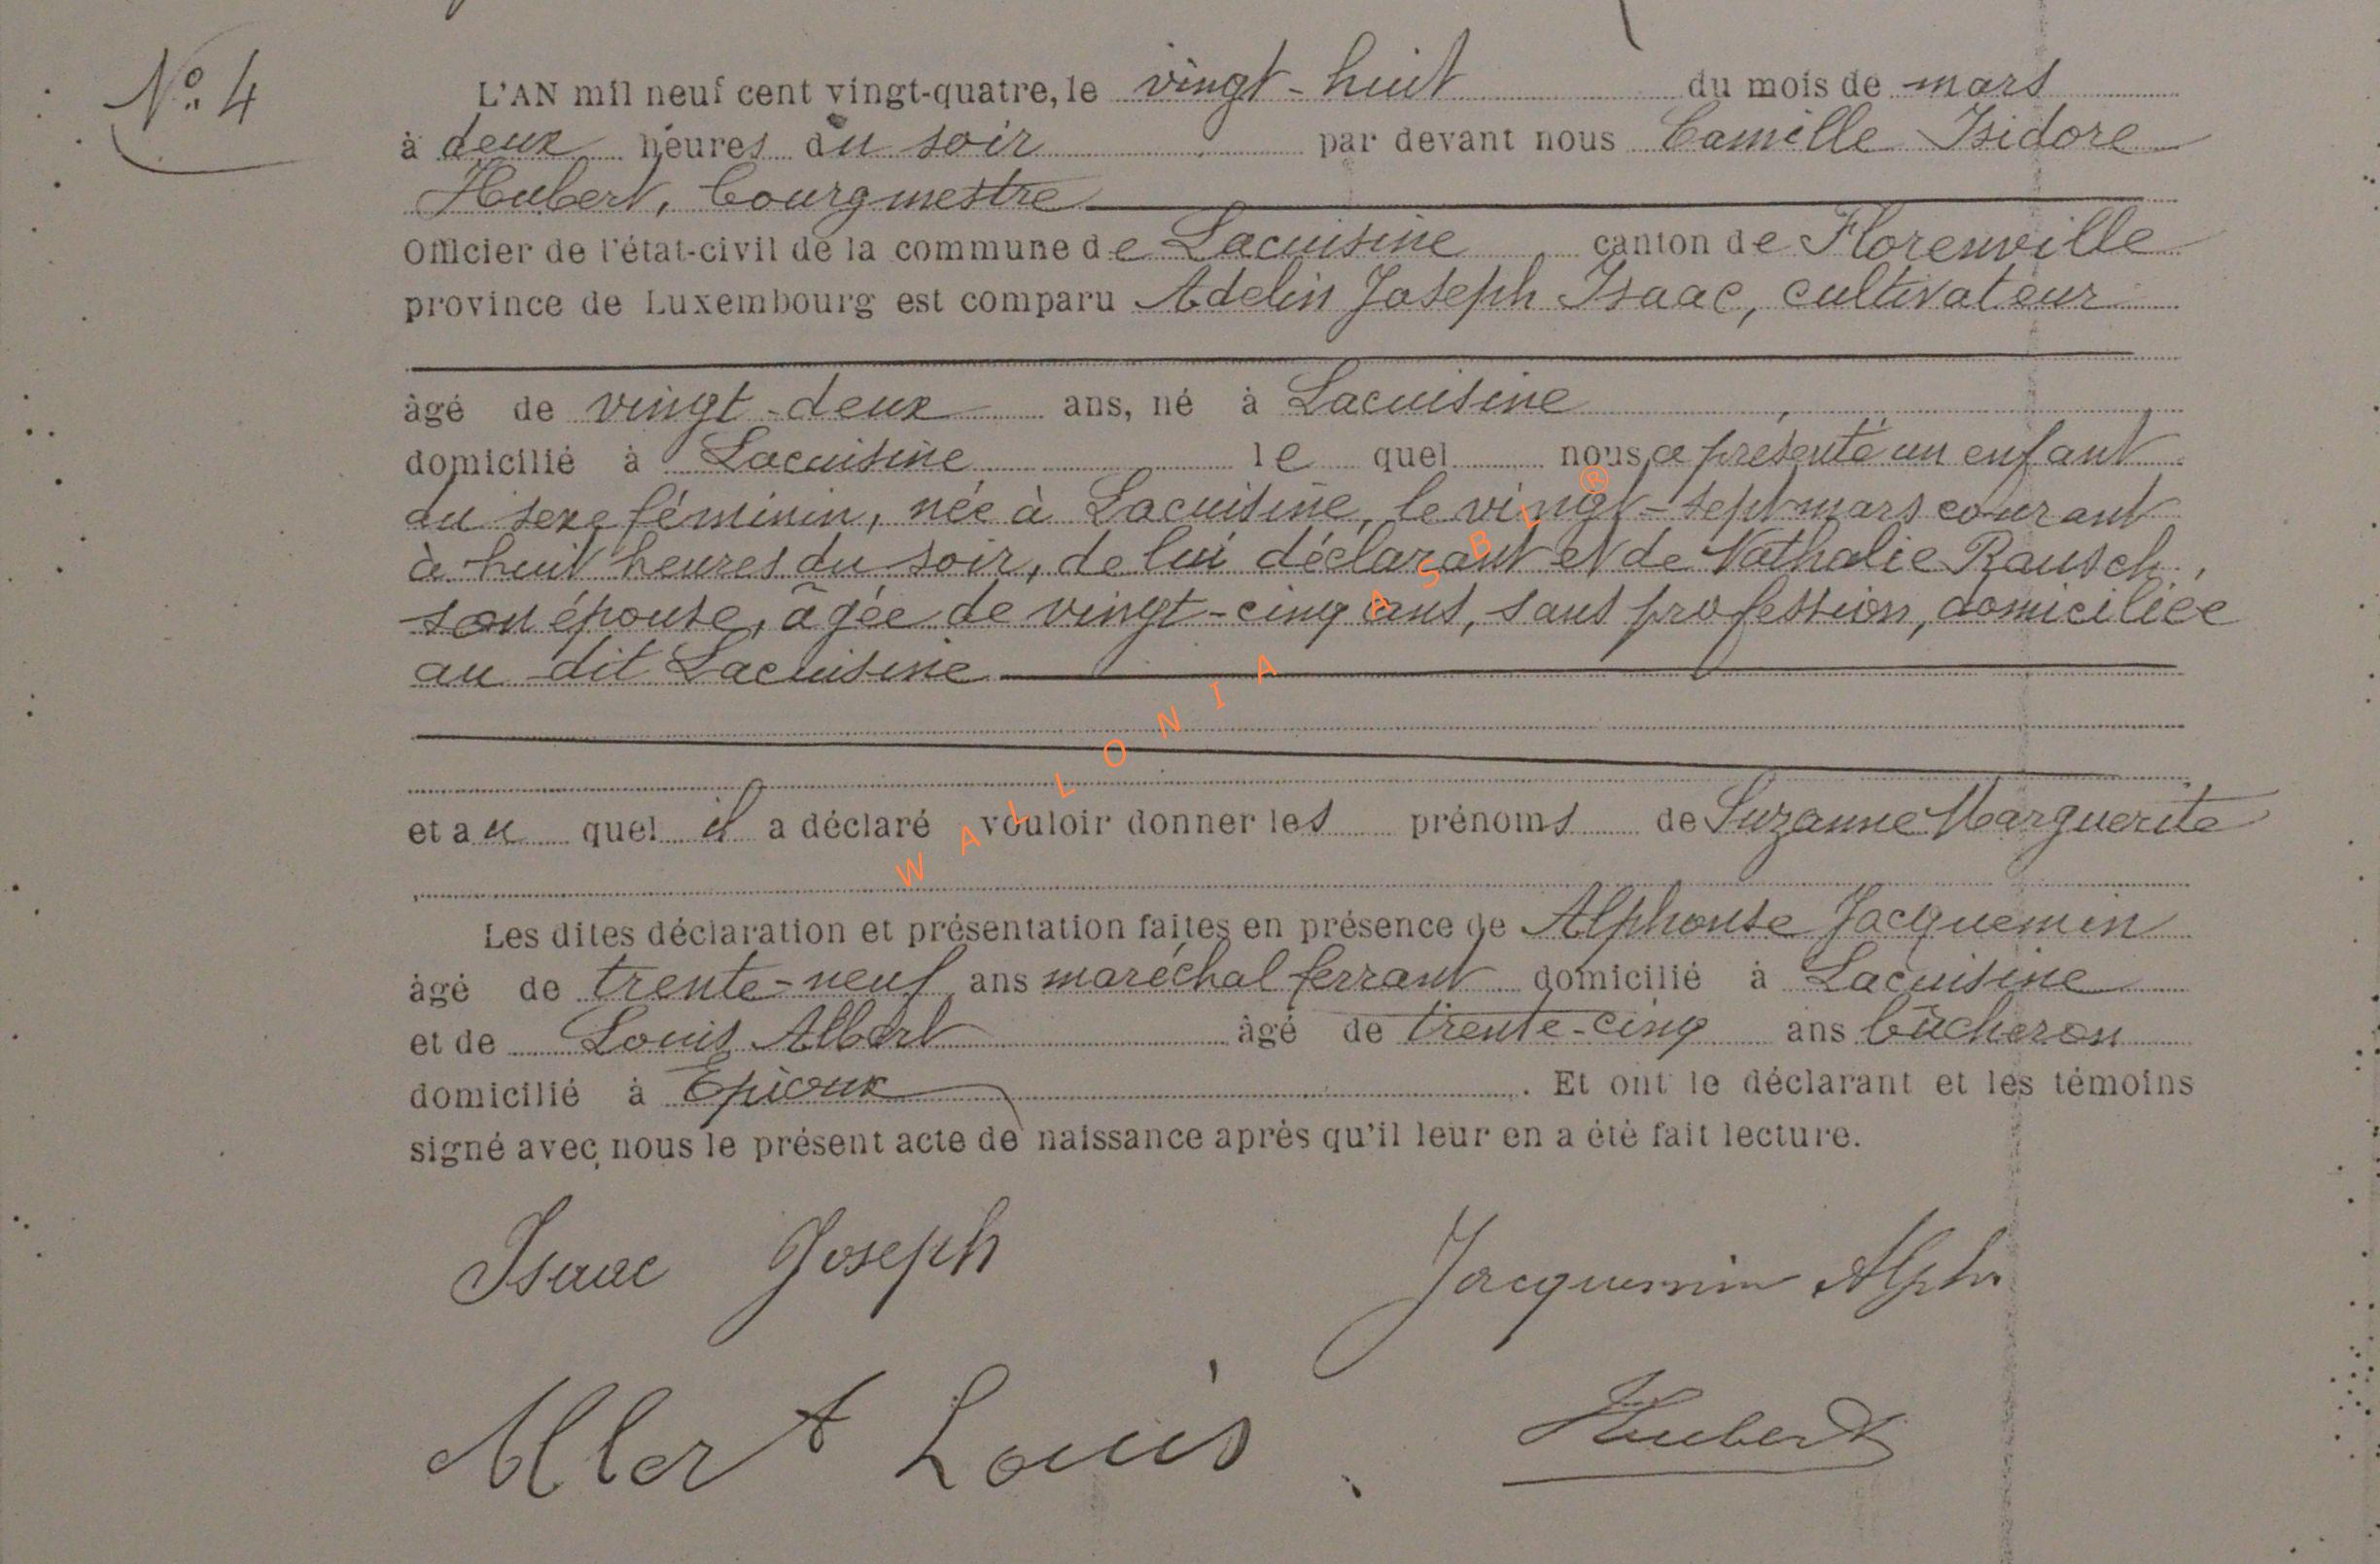 N° 4
L'AN mil neuf cent vingt-quatre, le vingt-huit du mois de mars
à deux heures du soir par devant nous Camille Isidore
Hubert, bourgmestre
Officier de l'état-civil de la commune de Lacuisine canton de Florenville
province de Luxembourg est comparu Adelin Joseph Isaac, cultivateur
âgé de vingt-deux ans, né à Lacuisine,
domicilié à Lacuisine le quel nous a présenté un enfant
du sexe féminin, née à Lacuisine, le vingt-sept mars courant
à huit heures du soir, de lui déclarant et de Nathalie Rausch,
son épouse, âgée de vingt-cinq ans, sans profession, domiciliée
au dit Lacuisine
et au quel il a déclaré vouloir donner les prénoms de Suzanne Marguerite
Les dites déclaration et présentation faites en présence de Alphonse Jacquemin
âgé de trente-neuf ans maréchal ferrant domicilié à Lacuisine
et de Louis Albert âgé de trente-cinq ans bûcheron
domicilié à Epioux. Et ont le déclarant et les témoins
signé avec nous le présent acte de naissance après qu'il leur en a été fait lecture.
Isaac Joseph Jacquemin Alph
Albert Louis Hubert
WALLONIA ASBL ®